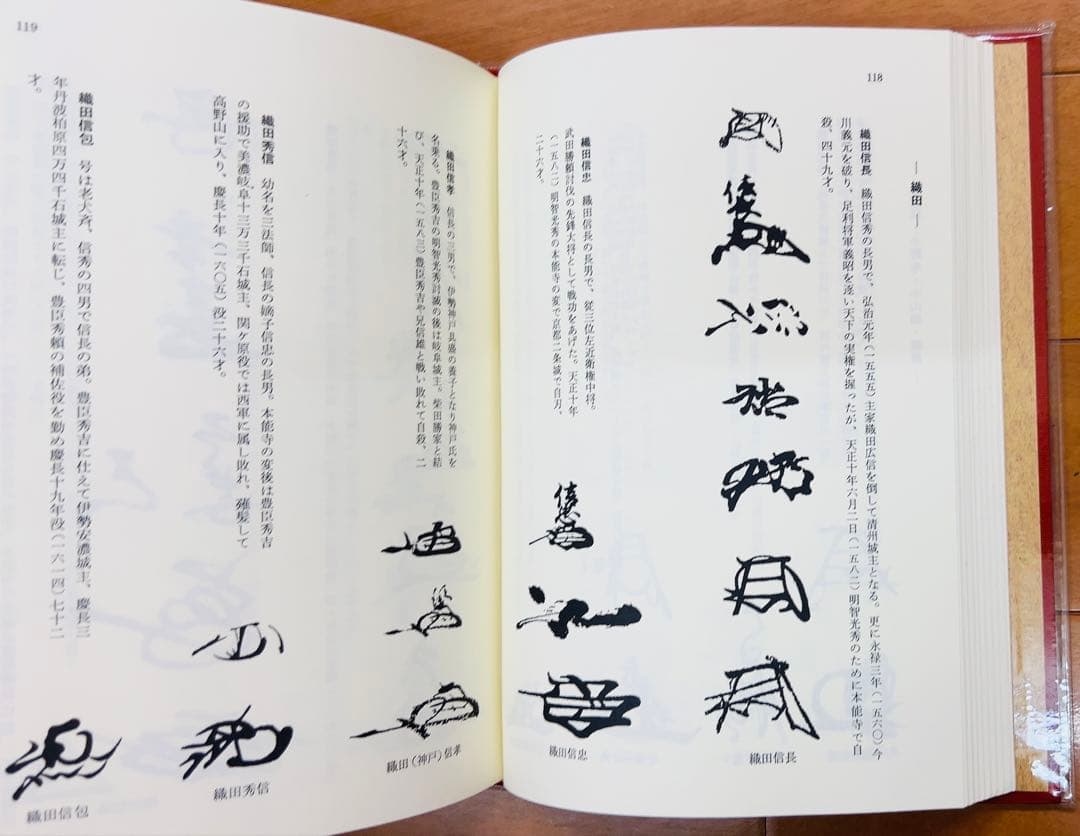 118
― 織田 ―
織田信長 織田信秀の長男で、弘治元年(一五五五)主家織田広信を倒して清州城主となる。更に永禄三年(一五六〇)今
川義元を破り、足利将軍義昭を逐い天下の実権を握ったが、天正十年六月二日(一五八二)明智光秀のために本能寺で自
殺、四十九才。
織田信長
織田信忠 織田信長の長男で、従三位左近衛権中将。
武田勝頼討伐の先鋒大将として戦功をあげた。天正十年
(一五八二)明智光秀の本能寺の変で京都二条城で自刃、
二十六才。
織田信忠
119
織田信孝 信長の三男で、伊勢神戸具盛の養子となり神戸氏を
名乗る。豊臣秀吉の明智光秀討滅の後は岐阜城主。柴田勝家と結
び、天正十年(一五八三)豊臣秀吉や兄信雄と戦い敗れて自殺、二
十六才。
織田(神戸)信孝
織田秀信 幼名を三法師、信長の嫡子信忠の長男。本能寺の変後は豊臣秀吉
の援助で美濃岐阜十三万三千石城主、関ケ原役では西軍に属し敗れ、薙髪して
高野山に入り、慶長十年(一六〇五)没二十六才。
織田秀信
織田信包 号は老犬斉、信秀の四男で信長の弟。豊臣秀吉に仕えて伊勢安濃城主、慶長三
年丹波柏原四万四千石城主に転じ、豊臣秀頼の補佐役を勤め慶長十九年没(一六一四)七十二
才。
織田信包